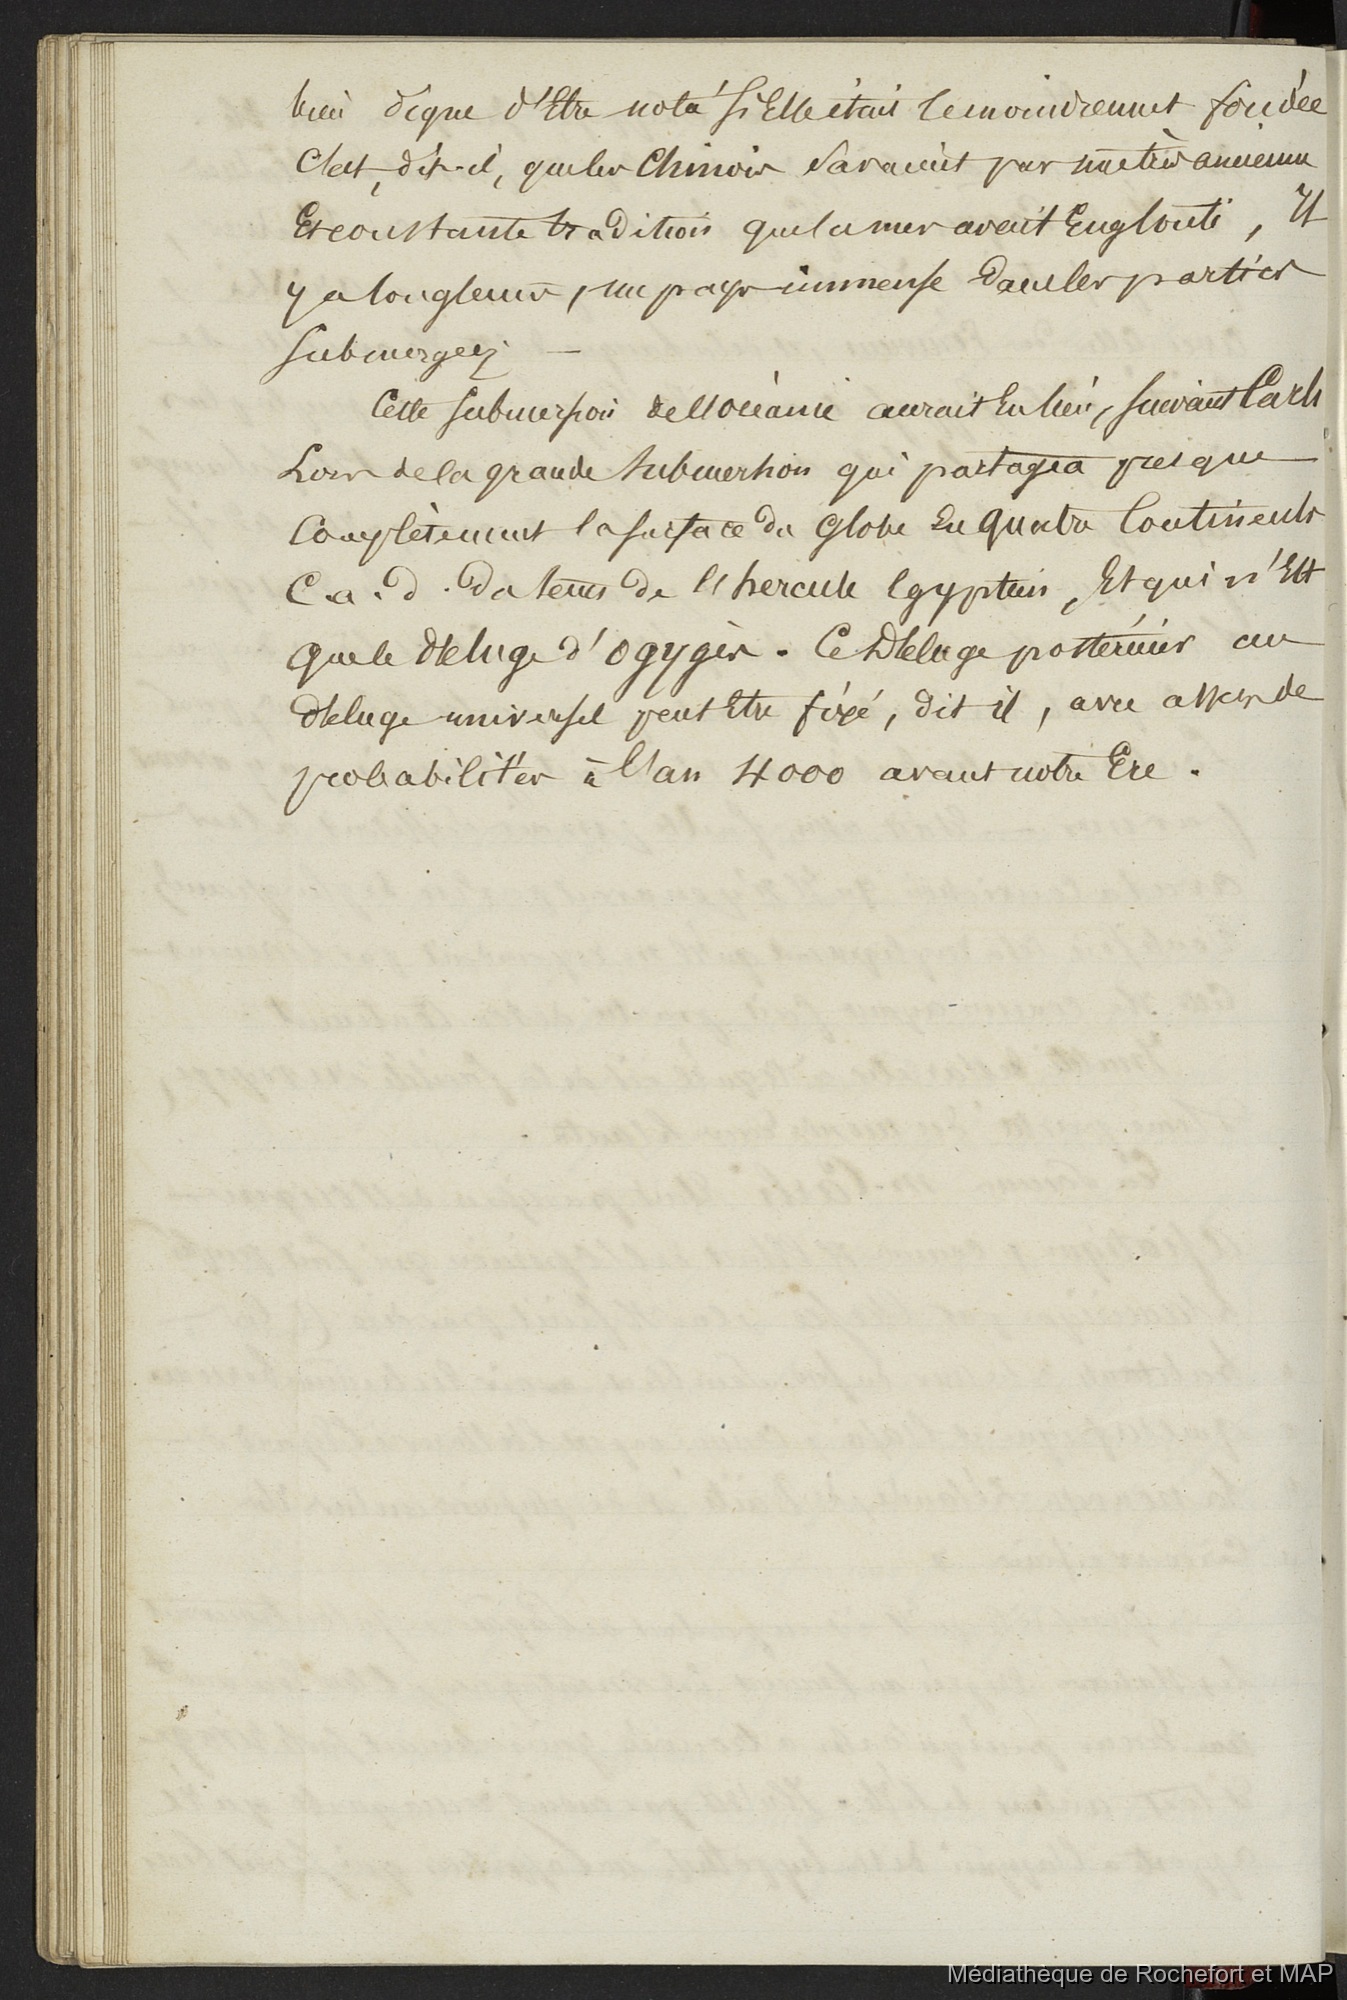 bien digne d'Etre noté si Elle était le moindrement fondée
C'est, dit-il, que les Chinois savaient par une très ancienne
Et constante tradition que la mer avait Englouti, Il
y a longtems, un pays immense dans les parties
submergées —
Cette submersion de l'océanie aurait Eu lieu, suivant Carli
Lors de la grande submersion qui partagea presque
Complètement la surface du Globe En quatre Continents
C.a.d. du tems de l'hercule Egyptien, Et qui n'Est
que le déluge d'Ogygès. Ce déluge postérieur au
déluge universel peut Etre fixé, dit il, avec assez de
probabilités à l'an 4000 avant notre Ere.
Médiathèque de Rochefort et MAP